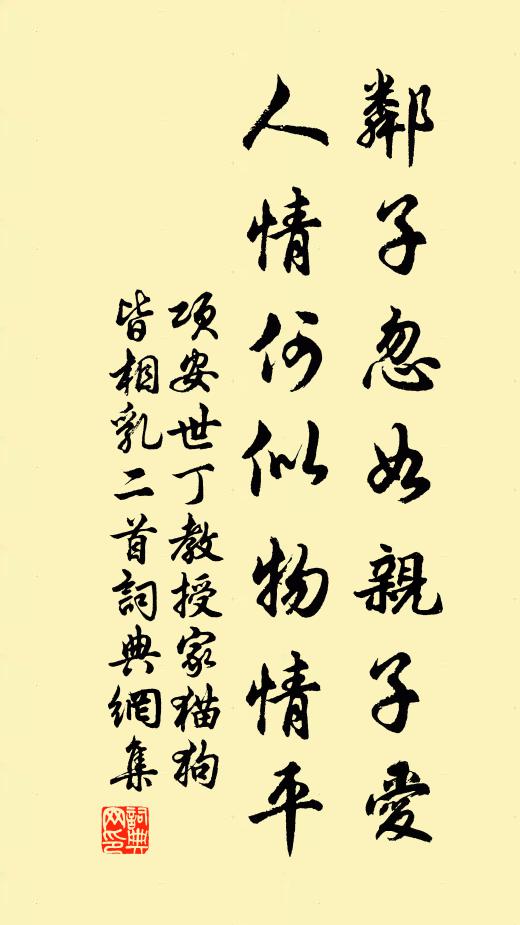 鄰子忽如親子愛
人情何似物情平
項安世丁教授家猫狗
皆相乳二首詞典網集
詞典网印